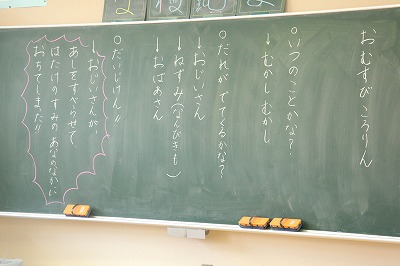 おむすびころりん
○いつのことかな？
↓むかしむかし
○だれが でてくるかな？
↓おじいさん
↓ねずみ(なんびきも)
↓おばあさん
○だいじけん!!
↓おじいさんが
あしをすべらせて
はたけのすみのあなのなかに
おちてしまった!!